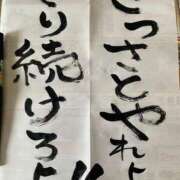 とっさとやれよ
り続けろよ!!